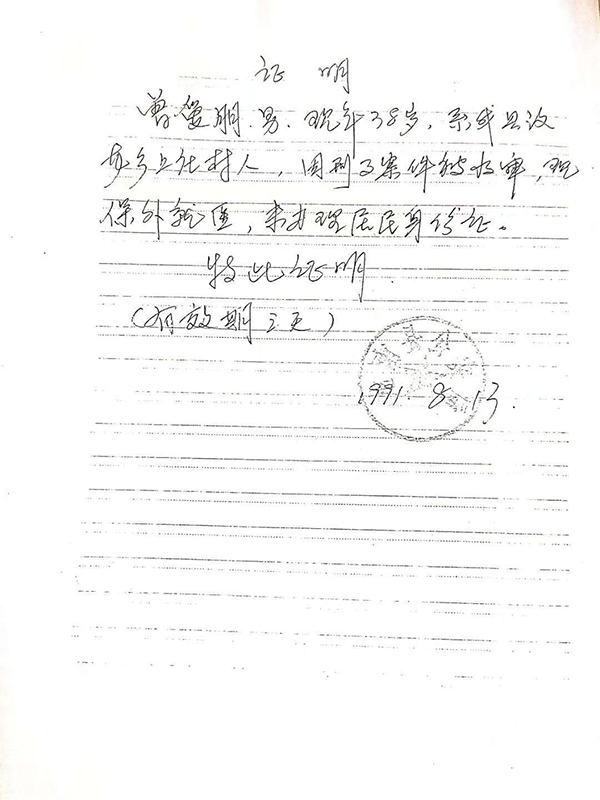 证 明
曾 朋、男、现年38岁,系我县汝
东乡上社村人,因刑事案件被收审,现
保外就医,未办理居民身份证。
特此证明
(有效期三天)
1991.8.13.